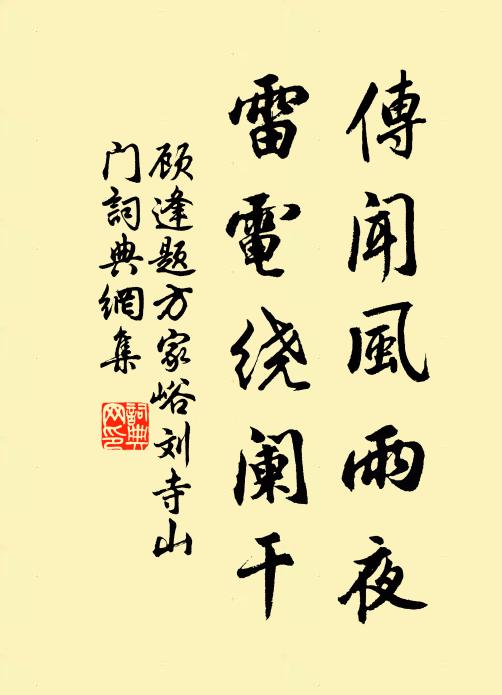 傳聞風雨夜
雷電绕阑干
顾逢题方家峪刘寺山
门詞典網集
詞典
网印